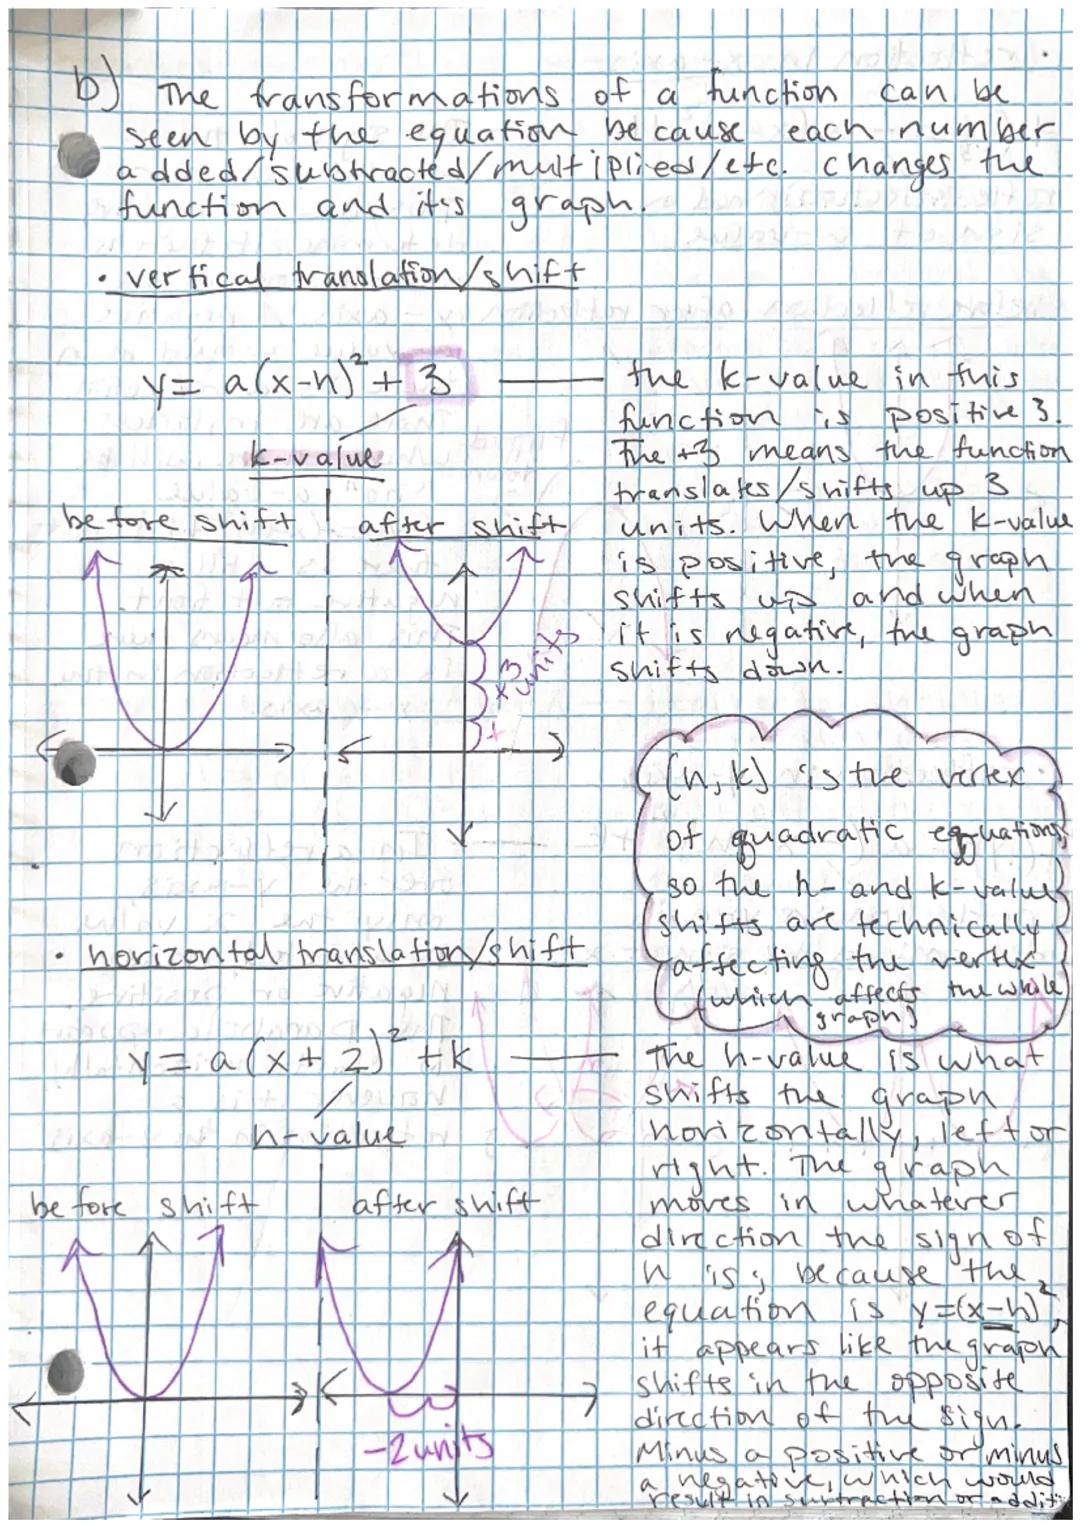 b) The transformations of a function can be
seen by the equation because each number
added/subtracted/multiplied/etc. changes the
function and it's graph.
• vertical translation/shift
y = a(x-h)² + 3
k-value
the k-value in this
function is positive 3.
The +3 means the function
translates/shifts up 3
units. When the k-value
is positive, the graph
shifts up and when
it is negative, the graph
shifts down.
before shift
after shift
3
units
+
(h, k) is the vertex
of quadratic equations,
so the h- and k-value
shifts are technically
affecting the vertex
(which affects the whole
graph)
• horizontal translation/shift
y = a(x + 2)² + k
h-value
The h-value is what
shifts the graph
horizontally, left or
right. The graph
moves in whatever
direction the sign of
h is; because the
equation is y=(x-h)²,
it appears like the graph
shifts in the opposite
direction of the sign.
Minus a positive or minus
a negative, which would
result in subtraction or addit
before shift
after shift
-2 units